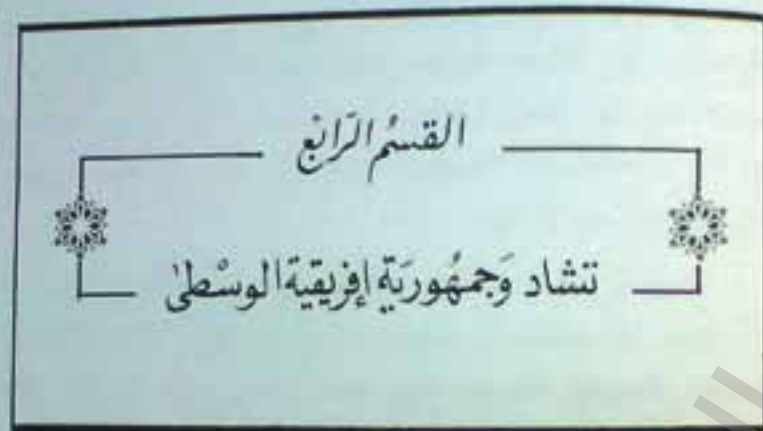 القسْمُ الرَّابِعُ
تشاد وَجمهُوريَةِ إفريقيَة الوسْطىٰ